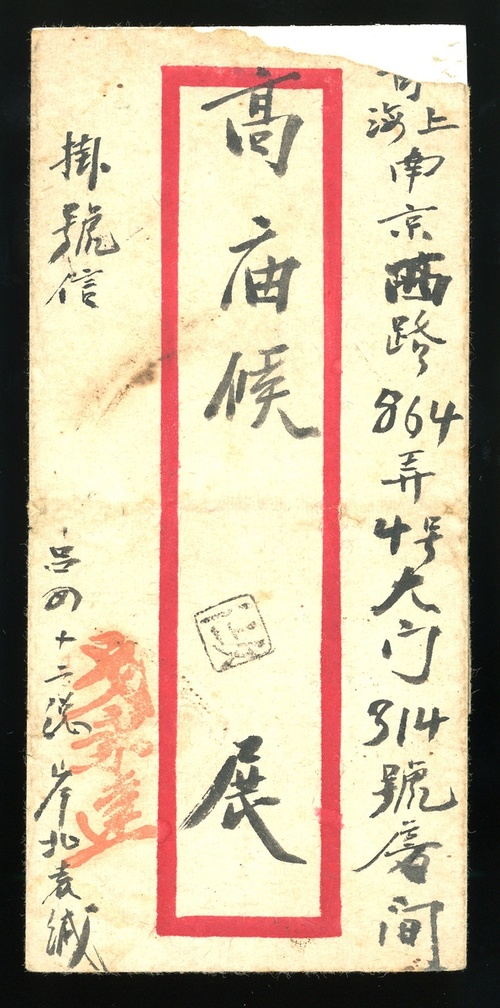 上海南京西路864弄4号大门314號房间
高庙候 展
掛號信
吕四十二岸北袁缄